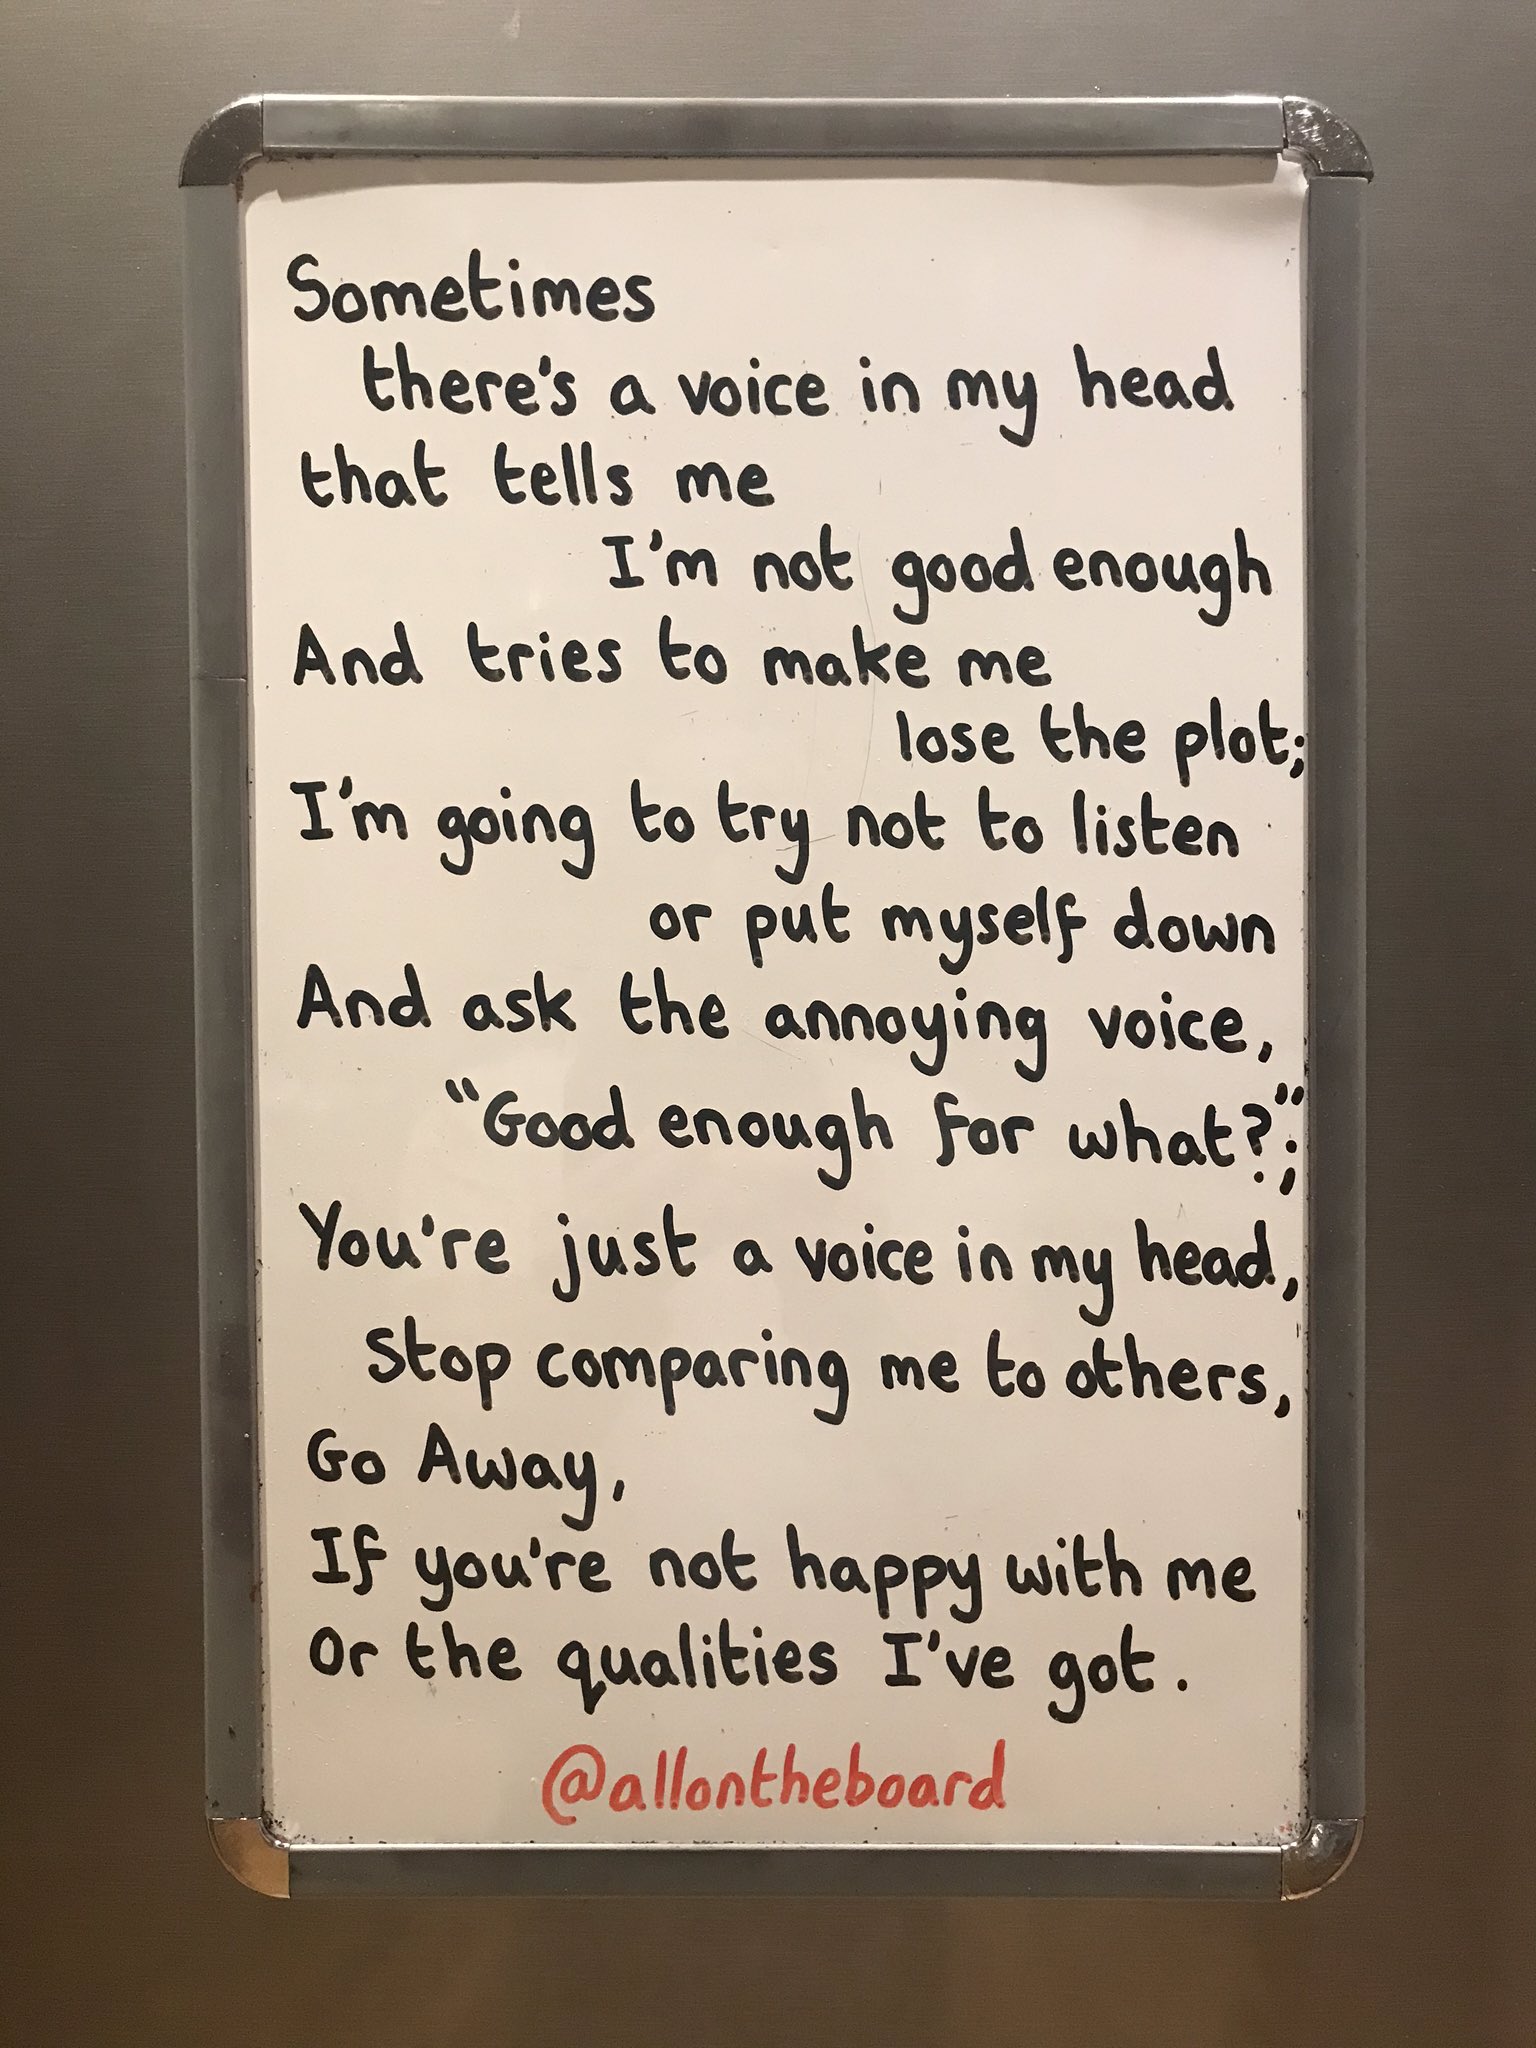 Sometimes
there's a voice in my head
that tells me
I'm not good enough
And tries to make me
lose the plot;
I'm going to try not to listen
or put myself down
And ask the annoying voice,
"Good enough for what?";
You're just a voice in my head,
Stop comparing me to others,
Go Away,
If you're not happy with me
Or the qualities I've got.
@allontheboard